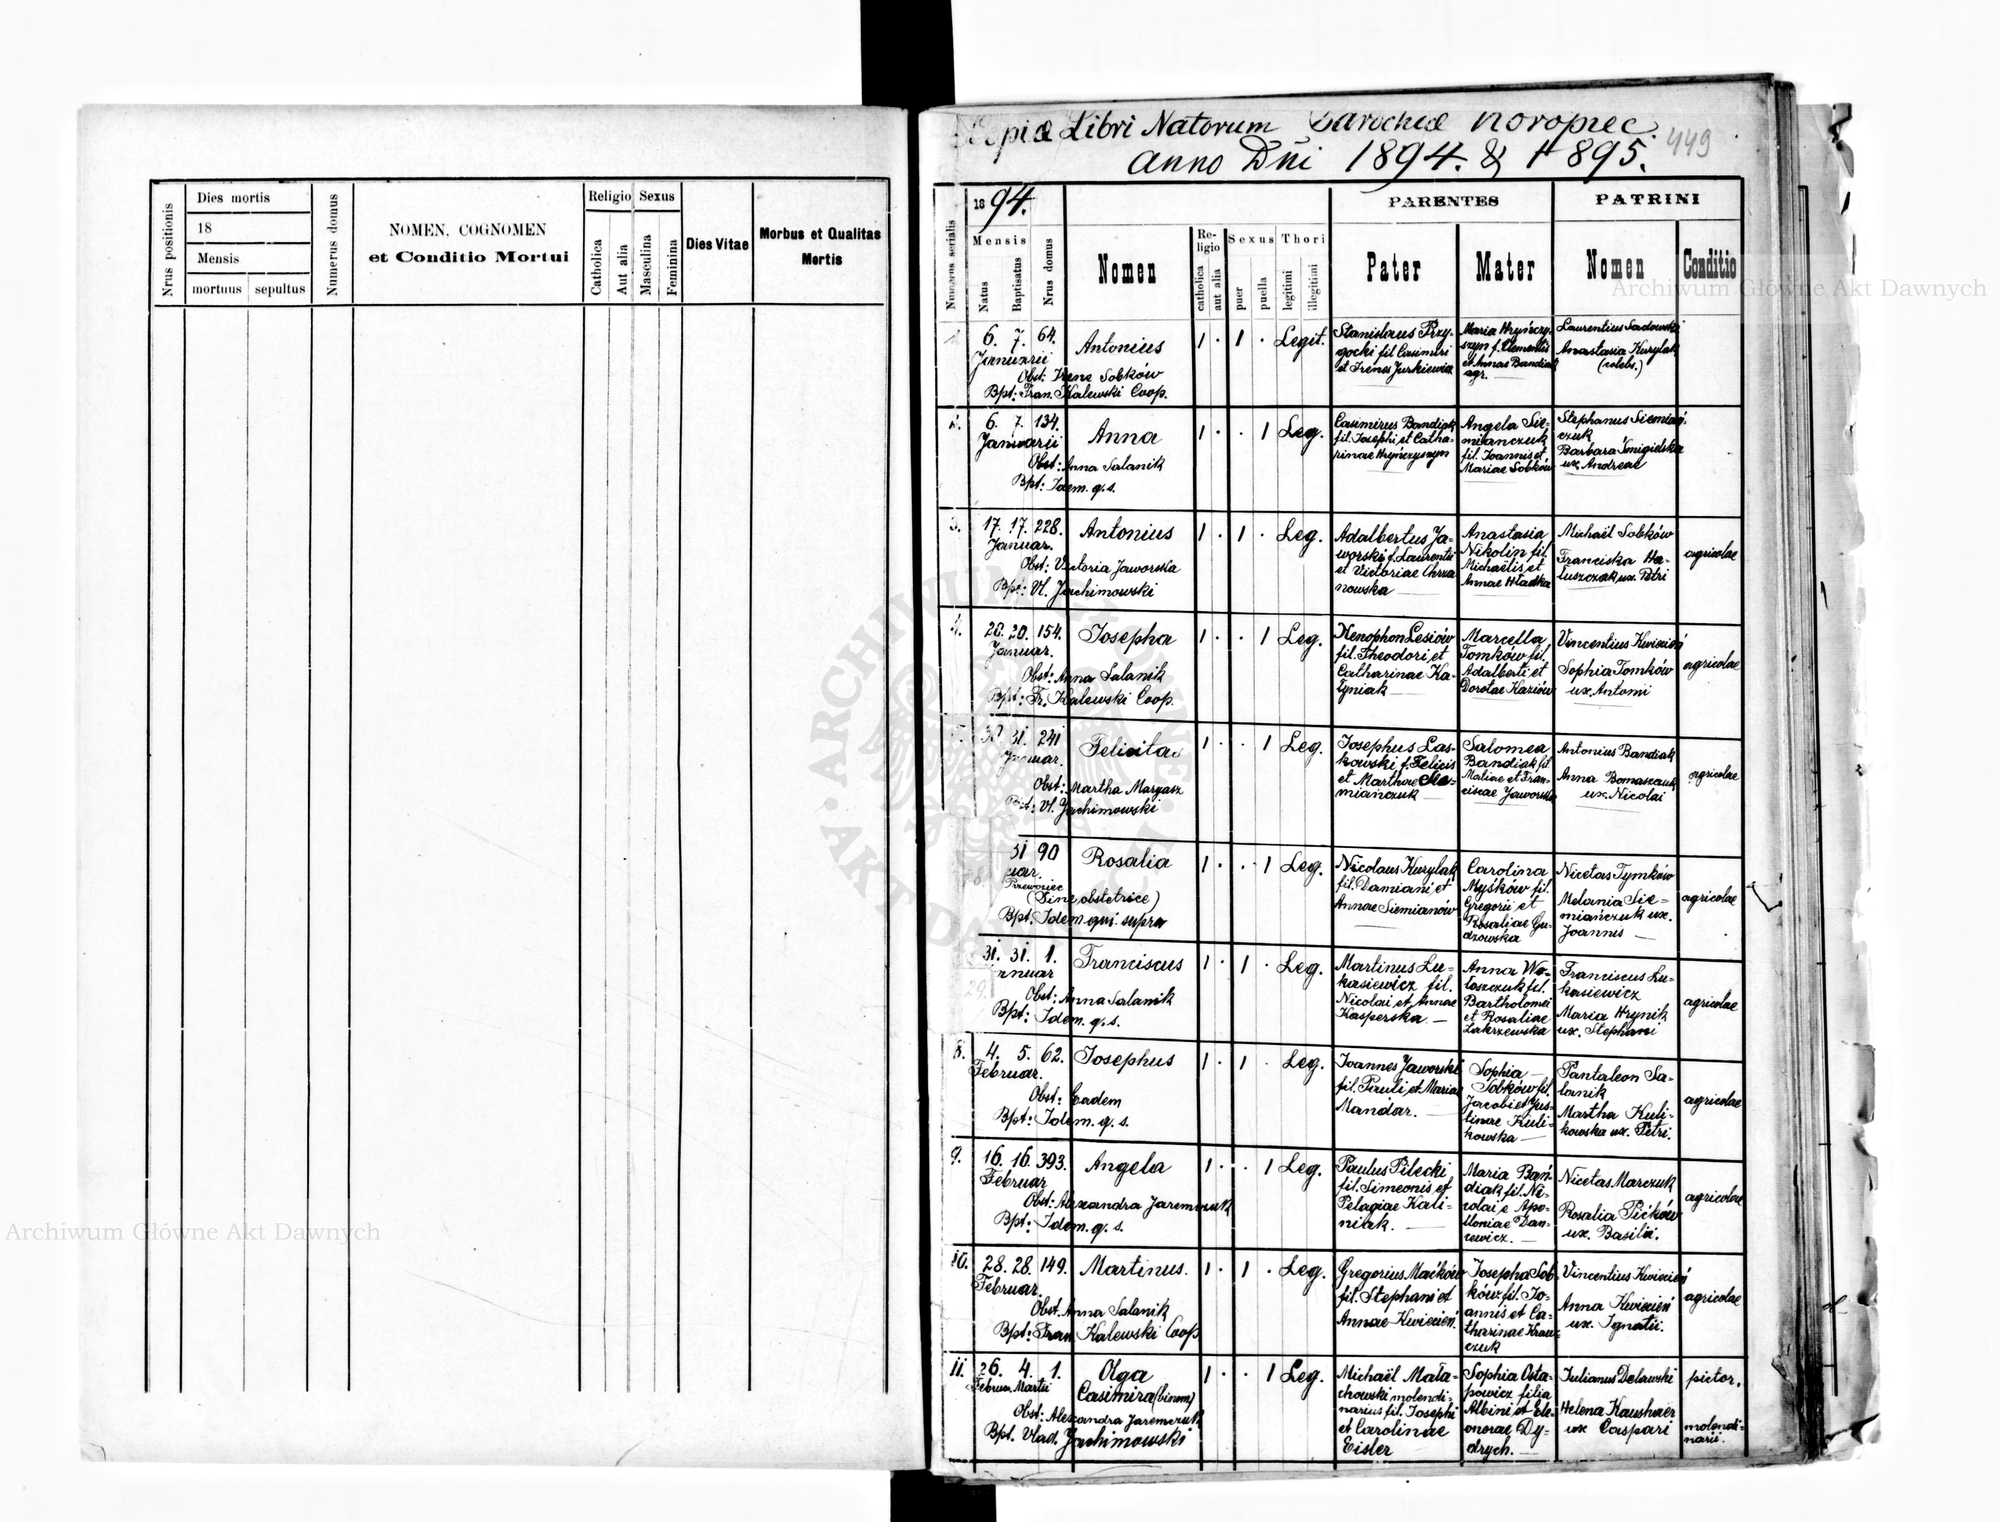 Nrus positionis
Dies mortis
18
Mensis
mortuus
sepultus
Numerus domus
NOMEN, COGNOMEN
et Conditio Mortui
Religio
Catholica
Aut alia
Sexus
Masculina
Feminina
Dies Vitae
Morbus et Qualitas
Mortis
Libri Natorum Parochiæ Koropiec
Anno Dni 1894. & 1895.
449
Numerus serialis
1894.
Mensis
Natus
Baptisatus
Nrus domus
Nomen
Religio
catholica
aut alia
Sexus
puer
puella
Thori
legitimi
illegitimi
PARENTES
Pater
Mater
PATRINI
Nomen
Conditio
1. 6. 7. 64. Antonius 1 · 1 · Legit.
Januarii
Obst: Irene Sobków
Bpt: Fran. Kalewski Coop.
Stanislaus Przy-
gocki fil Casimiri
et Irenes Jurkiewicz
Maria Hryńczy-
szyn f. Clementis
et Annae Bandiak
agr.
Laurentius Sadowski
Anastasia Kurylak
(celebs.)
2. 6. 7. 134. Anna 1 · · 1 Leg.
Januarii
Obst: Anna Salanik
Bpt: Idem. q. s.
Casimirus Bandiak
fil. Josephi et Catha-
rinae Hryńczyszyn
Angela Sie-
miańczuk
fil. Joannis et
Mariae Sobków
Stephanus Siemiań-
czuk
Barbara Śmigielska
ux. Andreae
3. 17. 17. 228. Antonius 1 · 1 · Leg.
Januar.
Obst: Victoria Jaworska
Bpt: Vl. Jachimowski
Adalbertus Ja-
worski f. Laurentii
et Victoriae Chrza
nowska
Anastasia
Nikolin fil.
Michaëlis et
Annae Hładka
Michaël Sobków
Franciska Ha-
łuszczak ux. Petri
agricolae
4. 20. 20. 154. Josepha 1 · · 1 Leg.
Januar.
Obst: Anna Salanik
Bpt: Fr. Kalewski Coop.
Xenophon Lesiów
fil. Theodori et
Catharinae Ka-
tyniak
Marcella
Tomków fil.
Adalberti et
Dorotae Kaziów
Vincentius Kwiecień
Sophia Tomków
ux. Antonii
agricolae
5. 30 31. 241 Felicitas 1 · · 1 Leg.
Januar.
Obst: Martha Margasz
Bpt: Vl. Jachimowski
Josephus Las-
kowski f. Felicis
et Marthae Sie-
miańczuk
Salomea
Bandiak fil.
Matiae et Fran-
ciscae Jaworska
Antonius Bandiak
Anna Romaszczuk
ux. Nicolai
agricolae
31 90 Rosalia 1 · · 1 Leg.
uar.
Przewoziec
(Sine obstetrice)
Bpt. Idem qui supra
Nicolaus Kurylak
fil. Damiani et
Annae Siemianów
Carolina
Myśków fil.
Gregorii et
Rosaliae Gu-
dzowska
Nicetas Tymków
Melania Sie-
miańczuk ux.
Joannis
agricolae
31. 31. 1. Franciscus 1 · 1 · Leg.
anuar
Obst: Anna Salanik
Bpt: Idem. q. s.
Martinus Łu-
kasiewicz fil.
Nicolai et Annae
Kasperska
Anna Wo-
łoszczuk fil.
Bartholomei
et Rosaliae
Zakrzewska
Franciscus Łu-
kasiewicz
Maria Hrynik
ux. Stephani
agricolae
8. 4. 5. 62. Josephus 1 · 1 · Leg.
Februar.
Obst: Eadem
Bpt: Idem. q. s.
Joannes Jaworski
fil. Pauli et Mariae
Mandar.
Sophia
Sobków fil.
Jacobi et Jus-
tinae Kuli-
kowska
Pantaleon Sa-
lanik
Martha Kuli-
kowska ux. Petri.
agricolae
9. 16. 16. 393. Angela 1 · · 1 Leg.
Februar
Obst: Alexandra Jaremczuk
Bpt: Idem. q. s.
Paulus Pilecki
fil. Simeonis et
Pelagiae Kali-
niak.
Maria Ban-
diak fil. Ni-
colai e Apo-
lloniae Dan-
cewicz.
Nicetas Marczuk
Rosalia Pićków
ux. Basilii.
agricolae
10. 28. 28. 149. Martinus. 1 · 1 · Leg.
Februar.
Obst. Anna Salanik
Bpt: Fran. Kalewski Coop
Gregorius Maćków
fil. Stephani et
Annae Kwiecień.
Josepha Sob-
ków fil. Jo-
annis et Ca-
tharinae Kraw-
czuk
Vincentius Kwiecień
Anna Kwiecień
ux. Ignatii.
agricolae
11. 26. 4. 1. Olga 1 · · 1 Leg.
Februar. Martii Casimira (binom)
Obst: Alexandra Jaremczuk
Bpt. Vlad. Jachimowski
Michaël Mała-
chowski molendi-
narius fil. Josephi
et Carolinae
Eisler
Sophia Osta-
powicz filia
Albini et Ele-
onorae Dy-
drych.
Julianus Delawski
Helena Kaushaer
ux Caspari
pictor.
molendi-
narii.
Archiwum Główne Akt Dawnych
Archiwum Główne Akt Dawnych
ARCHIWUM GŁÓWNE AKT DAWNYCH